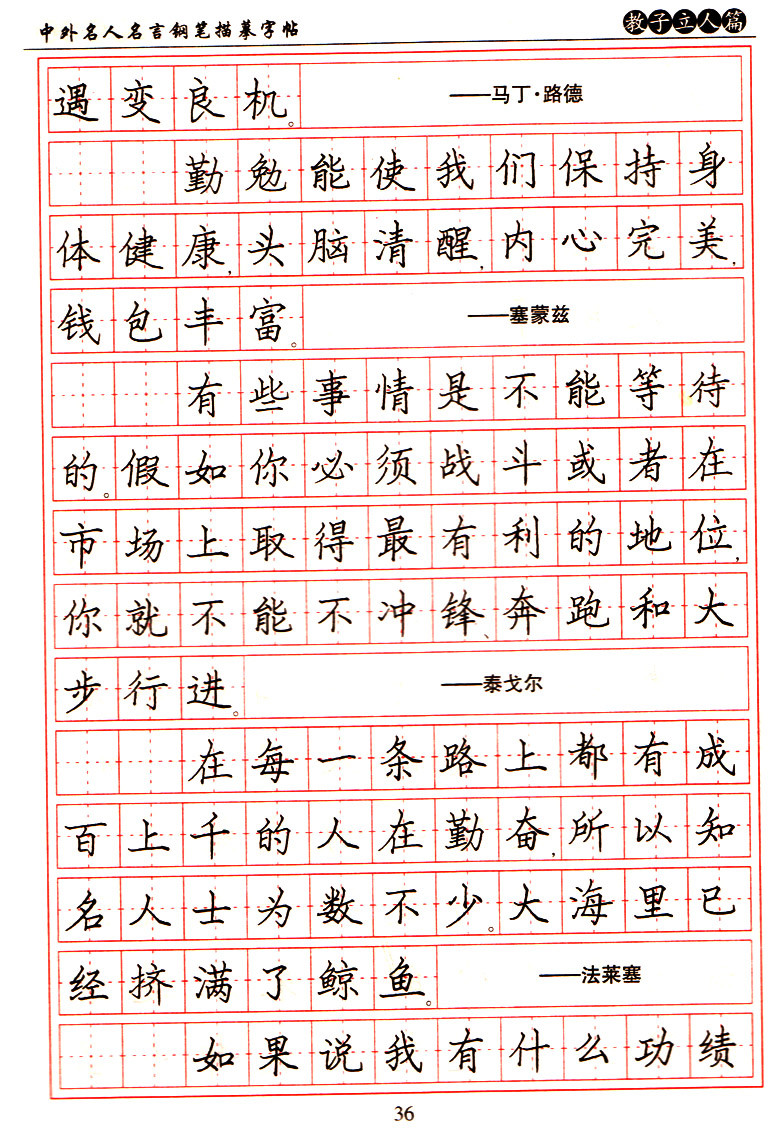 中外名人名言钢笔描摹字帖 教子立人篇
遇变良机。 ——马丁·路德
勤勉能使我们保持身
体健康,头脑清醒,内心完美,
钱包丰富。 ——塞蒙兹
有些事情是不能等待
的。假如你必须战斗或者在
市场上取得最有利的地位,
你就不能不冲锋、奔跑和大
步行进。 ——泰戈尔
在每一条路上都有成
百上千的人在勤奋,所以知
名人士为数不少。大海里已
经挤满了鲸鱼。 ——法莱塞
如果说我有什么功绩
36